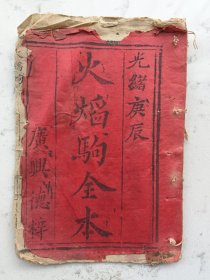 光緒庚辰
火焰駒全本
廣興德梓